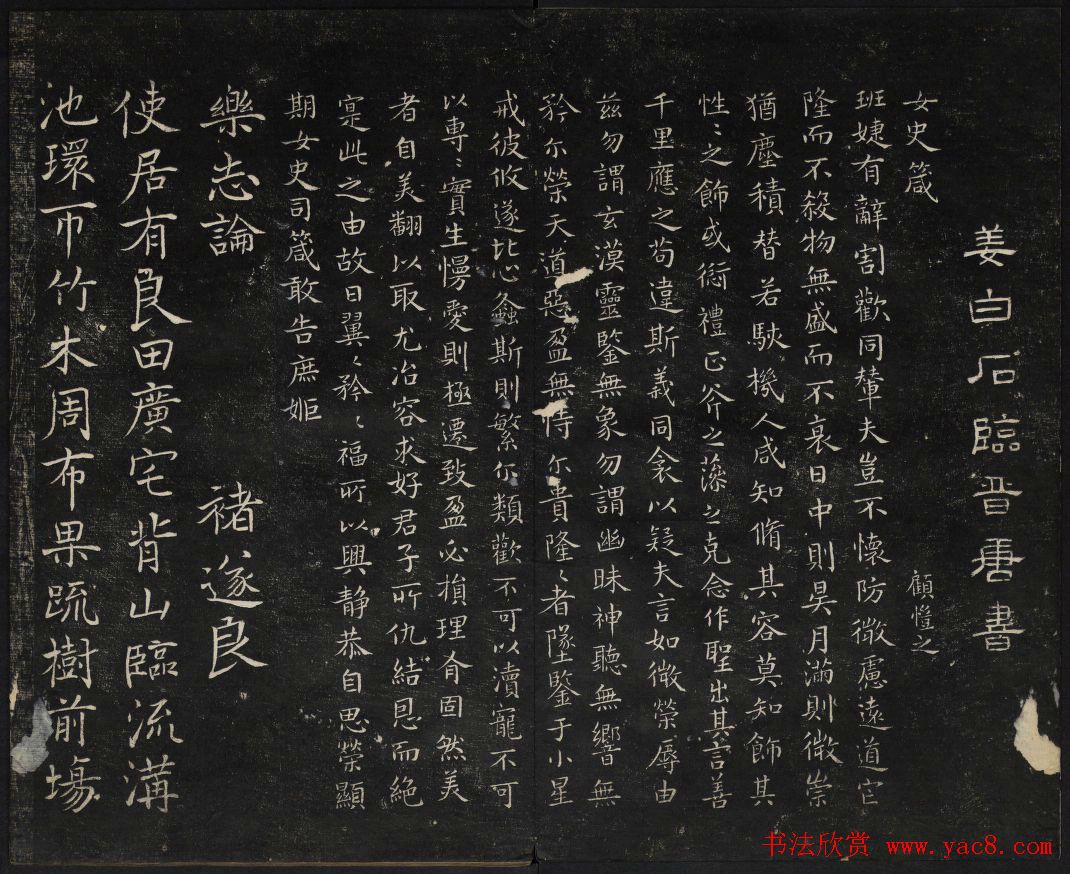 姜白石臨晉唐書
女史箴 顧愷之
班婕有辭割歡同輦夫豈不懷防微慮遠道宦
隆而不殺物無盛而不衰日中則昃月滿則微崇
猶塵積替若駭機人咸知脩其容莫知飾其
性〻之飾或愆禮正斧之藻之克念作聖出其言善
千里應之苟違斯義同衾以疑夫言如微榮辱由
茲勿謂玄漠靈鑒無象勿謂幽昧神聽無響無
矜尒榮天道惡盈無恃尒貴隆〻者墜鑒于小星
戒彼攸遂比心螽斯則繁尒類歡不可以瀆寵不可
以專〻實生慢愛則極遷致盈必損理有固然美
者自美翻以取尤冶容求好君子所仇結恩而絕
寔此之由故曰翼〻矜〻福所以興靜恭自思榮顯
期女史司箴敢告庶姬
樂志論 褚遂良
使居有良田廣宅背山臨流溝
池環帀竹木周布果蔬樹前場
书法欣赏 www.yac8.com